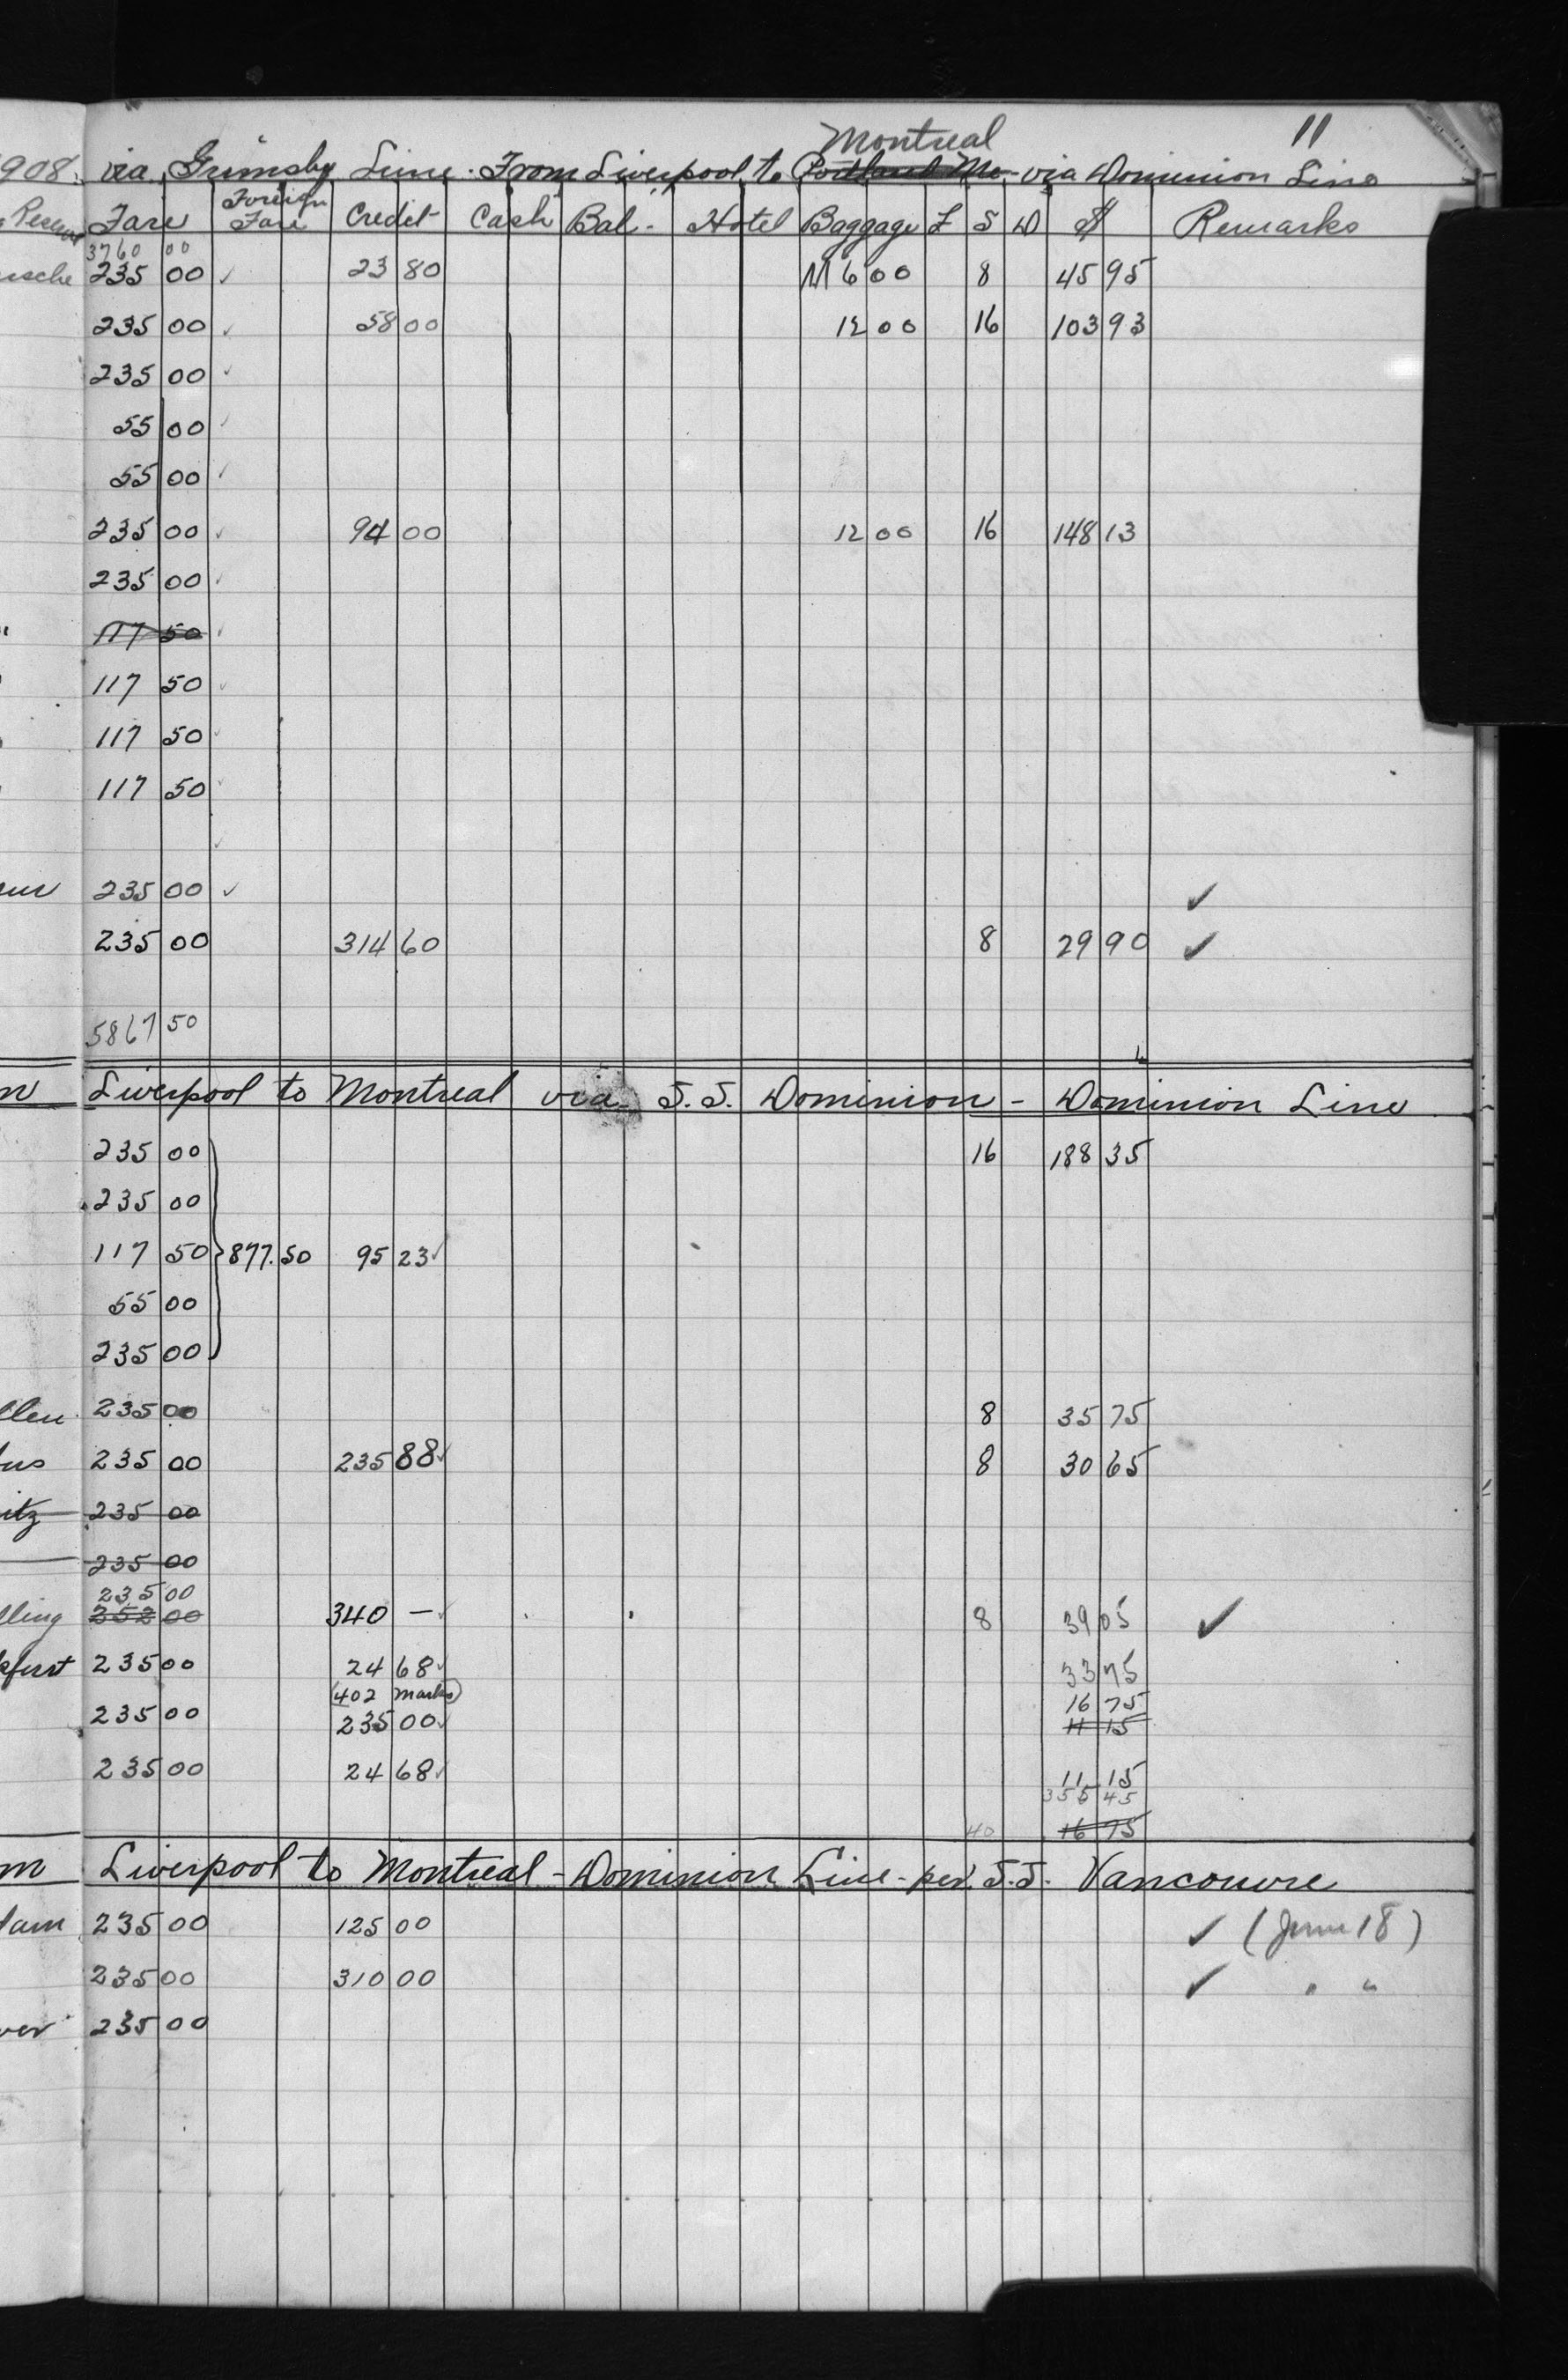 Montreal 11
908. via Grimsby Line. From Liverpool to Portland Me - via Dominion Line
Fare Foreign Fare Credit Cash Bal. Hotel Baggage £ S D $ Remarks
3760 00
usche 235 00 ✓ 23 80 M 6 00 8 45 95
235 00 ✓ 58 00 12 00 16 103 93
235 00 ✓
55 00 ✓
55 00 ✓
235 00 ✓ 94 00 12 00 16 148 13
235 00 ✓
117 50 ✓
117 50 ✓
117 50 ✓
117 50 ✓
✓
235 00 ✓ ✓
235 00 314 60 8 29 90 ✓
5867 50
Liverpool to Montreal via S.S. Dominion - Dominion Line
235 00 16 188 35
235 00
117 50 877.50 95 23 ✓
55 00
235 00
llen 235 00 8 35 75
fus 235 00 235 88 ✓ 8 30 65
itz 235 00
235 00
235 00
lling 252 00 340 — ✓ 8 39 05 ✓
kfurt 235 00 24 68 ✓ 33 75
(402 marks) 16 75
235 00 235 00 ✓ 11 15
235 00 24 68 ✓ 11 15
355 45
40 16 75
m Liverpool to Montreal - Dominion Line - per. S.S. Vancouvre
dam 235 00 125 00 ✓ (June 18)
235 00 310 00 ✓ " "
ver 235 00